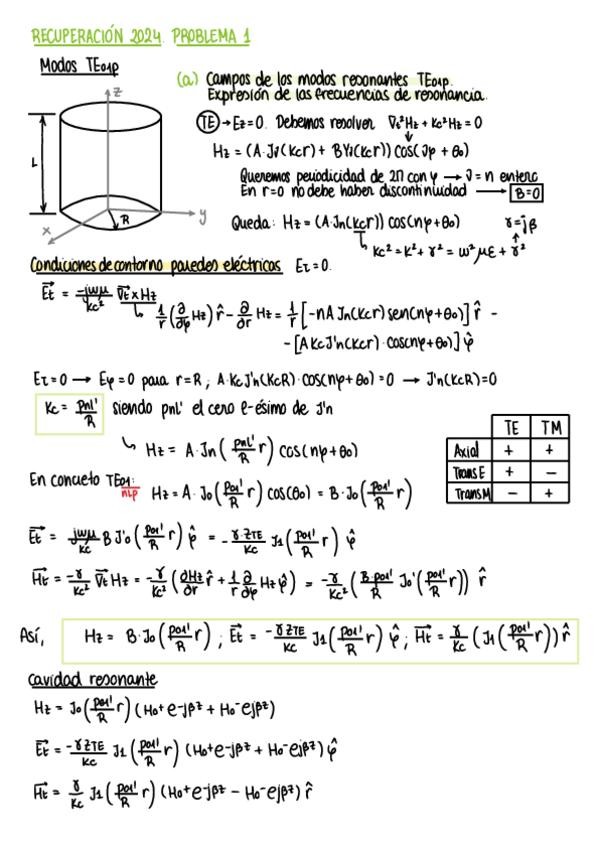 RECUPERACIÓN 2024. PROBLEMA 1
Modos TE₀₁p
(a) Campos de los modos resonantes TE₀₁p.
Expresión de las frecuencias de resonancia.
z
L
R
y
x
TE → Ez=0. Debemos resolver ∇t²Hz + Kc²Hz = 0
Hz = (A·Jν(Kcr) + BYν(Kcr)) cos(νφ + θ₀)
Queremos periodicidad de 2π con φ → ν = n entero
En r=0 no debe haber discontinuidad → B=0
Queda: Hz = (A·Jn(Kcr)) cos(nφ+θ₀) γ=jβ
Kc² = K² + γ² = ω²με + γ²
Condiciones de contorno paredes eléctricas Eτ = 0.
Et = -jωμ/Kc² ∇t × Hz
↳ 1/r (∂/∂φ Hz) r̂ - ∂/∂r Hz = 1/r [-nA Jn(Kcr) sen(nφ+θ₀)] r̂ -
- [A Kc J'n(Kcr) · cos(nφ+θ₀)] φ̂
Eτ=0 → Eφ = 0 para r=R ; A·Kc J'n(KcR)·cos(nφ+θ₀) = 0 → J'n(KcR)=0
Kc = Pnl'/R siendo pnl' el cero l-ésimo de J'n
↳ Hz = A·Jn(pnl'/R r) cos(nφ+θ₀)
TE TM
Axial + +
Trans E + -
Trans M - +
En concreto TE₀₁: nlp Hz = A·J₀(p₀₁'/R r) cos(θ₀) = B·J₀(p₀₁'/R r)
Et = jωμ/Kc B J'₀(p₀₁'/R r) φ̂ = - γ ZTE/Kc J₁(p₀₁'/R r) φ̂
Ht = -γ/Kc² ∇t Hz = -γ/Kc² (∂Hz/∂r r̂ + 1/r ∂/∂φ Hz φ̂) = -γ/Kc² (B·p₀₁'/R J₀'(p₀₁'/R r)) r̂
Así, Hz = B·J₀(p₀₁'/R r) ; Et = -γ ZTE/Kc J₁(p₀₁'/R r) φ̂ ; Ht = γ/Kc (J₁(p₀₁'/R r)) r̂
Cavidad resonante
Hz = J₀(p₀₁'/R r) (H₀⁺e-jβz + H₀⁻ejβz)
Et = -γZTE/Kc J₁(p₀₁'/R r) (H₀⁺e-jβz + H₀⁻ejβz) φ̂
Ht = γ/Kc J₁(p₀₁'/R r) (H₀⁺e-jβz - H₀⁻ejβz) r̂